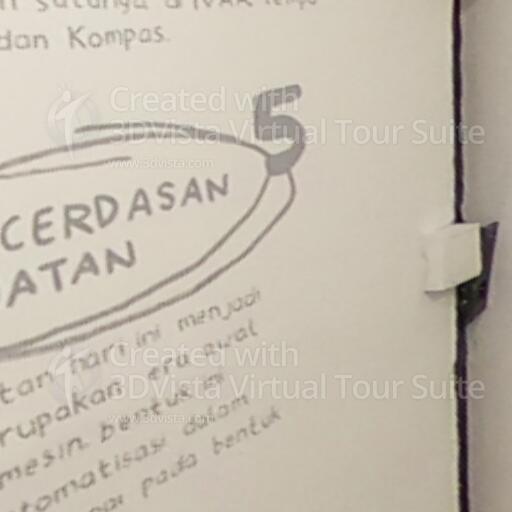 dan Kompas.
5
CERDASAN
ATAN
tan hari ini menjadi
rupakan era awal
mesin berbasis
tomatisasi dalam
pada bentuk
Created with
3DVista Virtual Tour Suite
www.3dvista.com
Created with
3DVista Virtual Tour Suite
www.3dvista.com